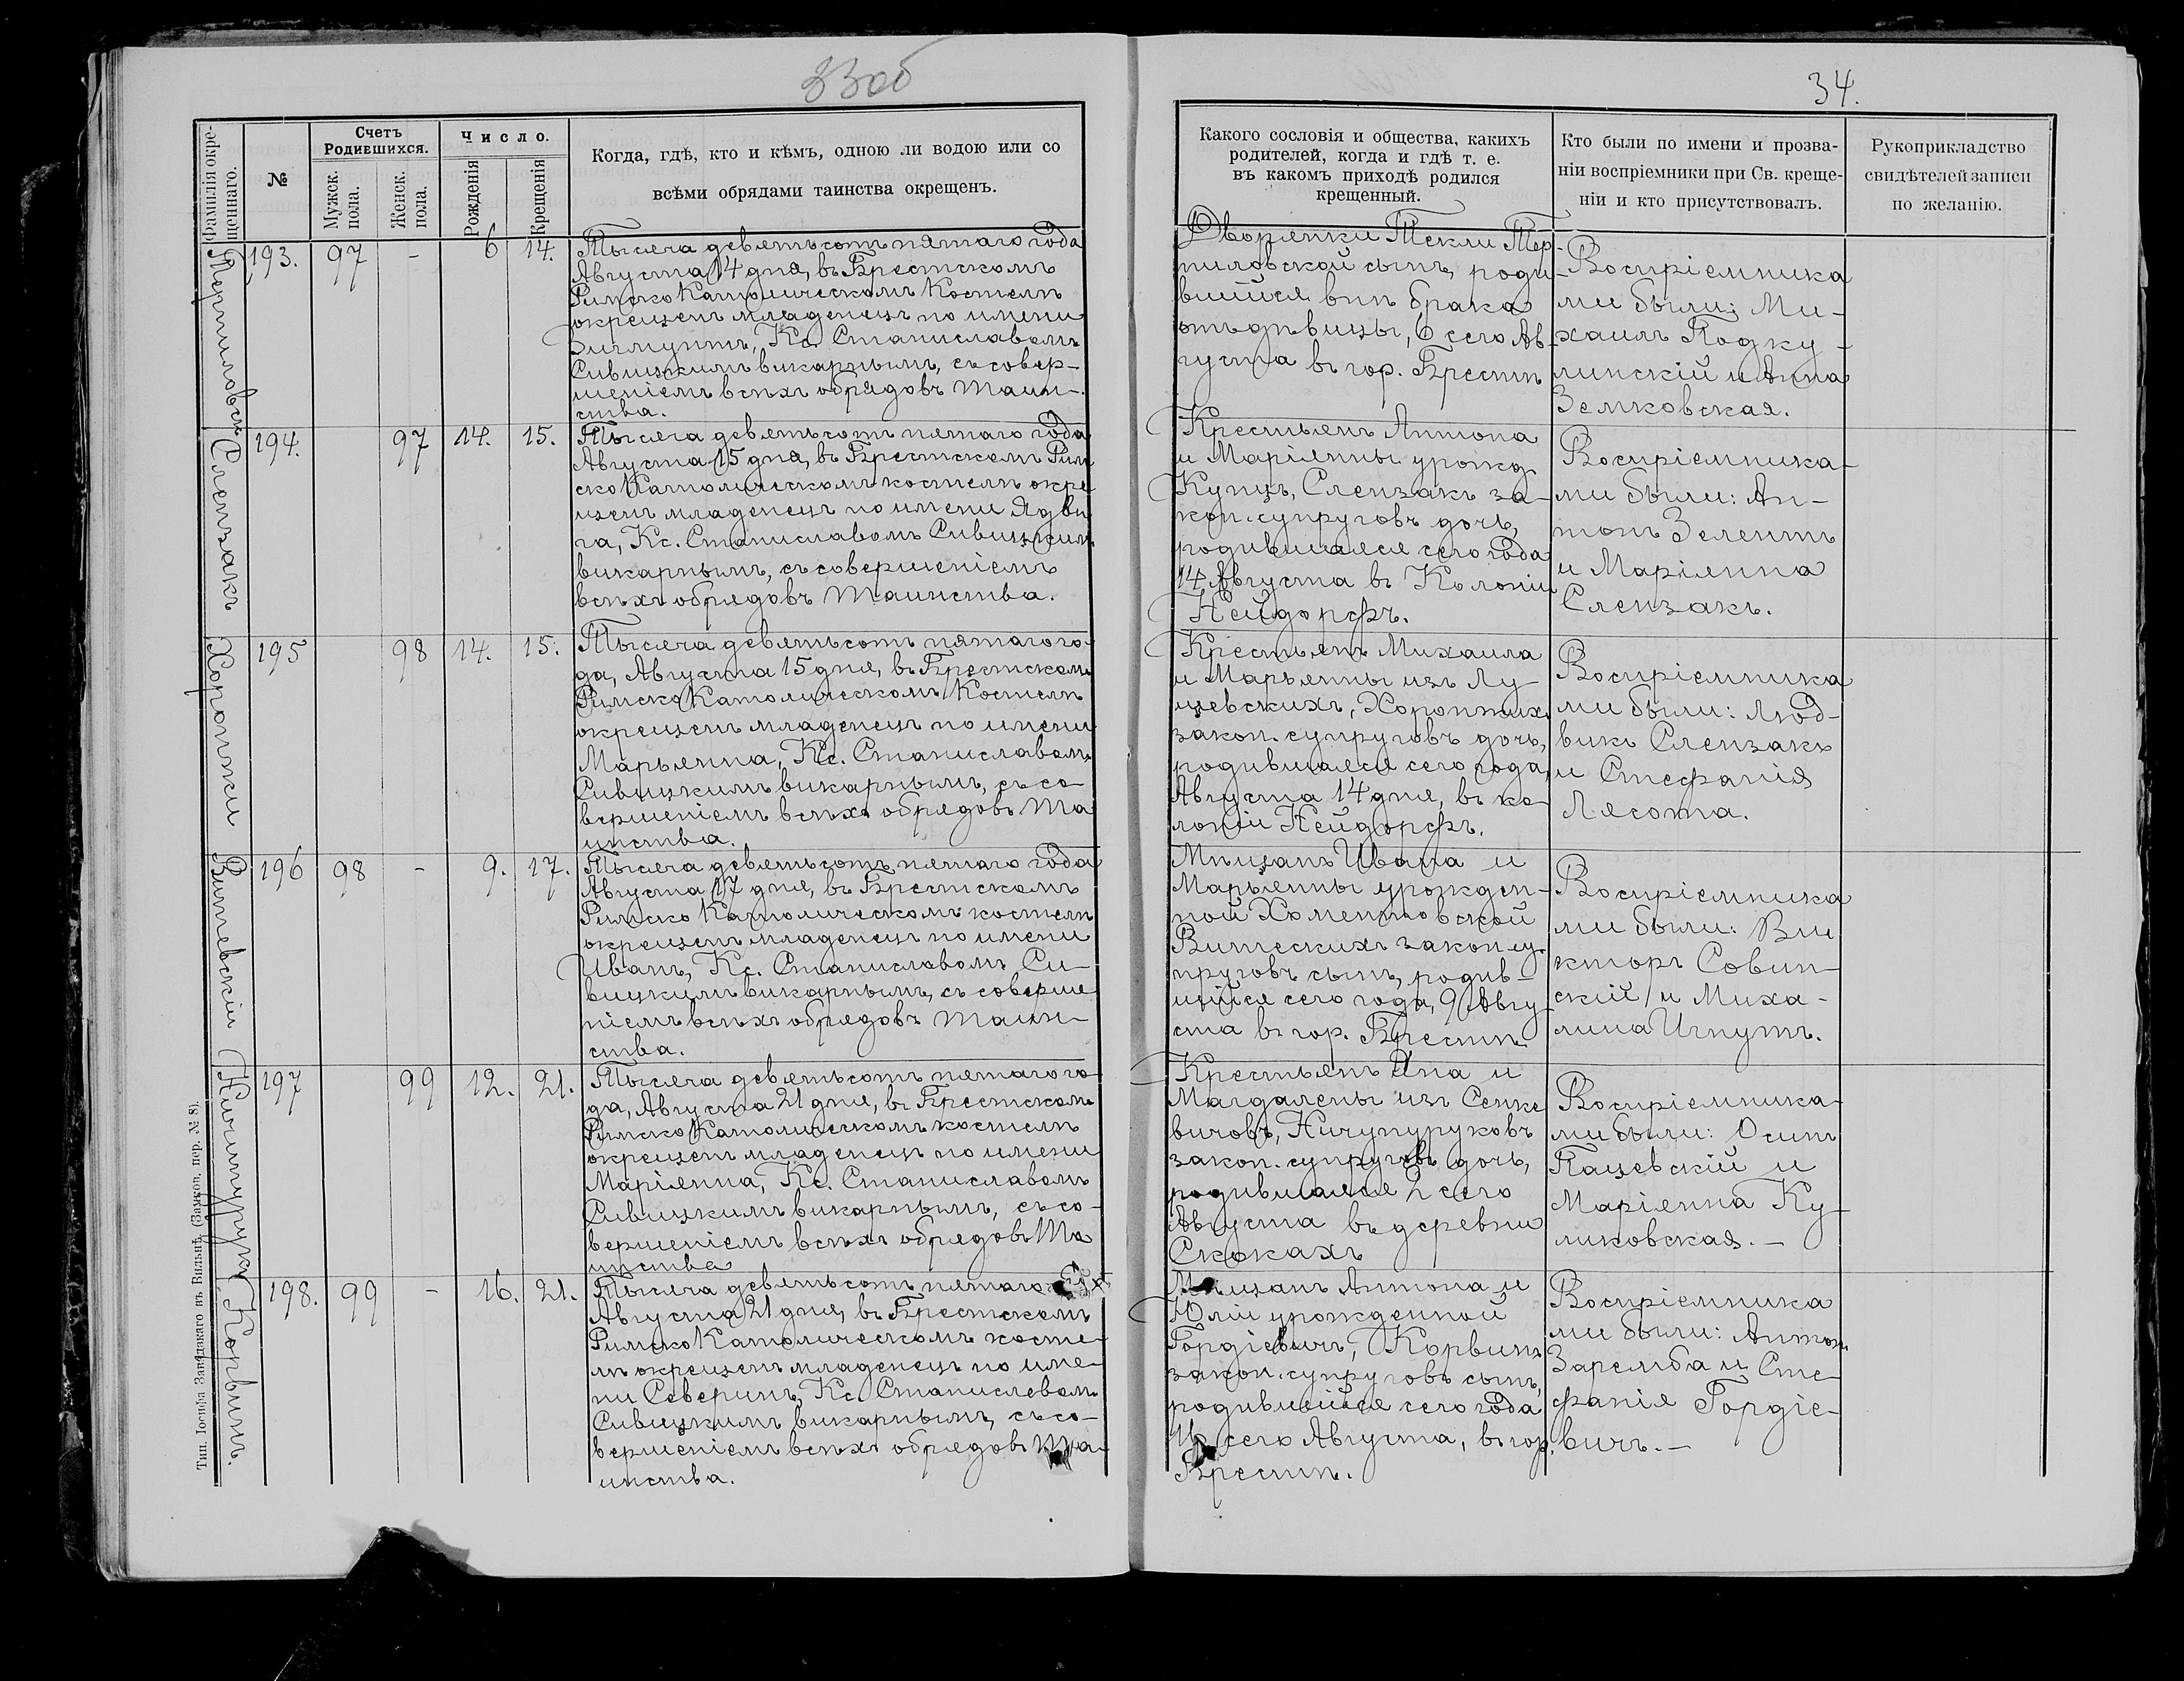 33об
34.
Фамилія окре-
щеннаго.
№
Счетъ
Родившихся.
Мужск.
пола.
Женск.
пола.
Число.
Рожденія
Крещенія
Когда, гдѣ, кто и кѣмъ, одною ли водою или со
всѣми обрядами таинства окрещенъ.
Какого сословія и общества, какихъ
родителей, когда и гдѣ т. е.
въ какомъ приходѣ родился
крещенный.
Кто были по имени и прозва-
ніи воспріемники при Св. креще-
ніи и кто присутствовалъ.
Рукоприкладство
свидѣтелей записи
по желанію.
193. 97 - 6 14.
Тысяча девятьсотъ пятаго года
Августа 14 дня, въ Брестскомъ
Римско Католическомъ Костелѣ
окрещенъ младенецъ по имени
Зигмунтъ, Кс. Станиславомъ
Сивицкимъ викарнымъ, съ совер-
шеніемъ всѣхъ обрядовъ Таин-
ства.
Дворянки Текли Тер-
пиловской сынъ, роди-
вшійся внѣ брака
отъ дѣвицы, 6 сего Ав-
густа въ гор. Брестѣ
Воспріемника
ми были: Ми-
хаилъ Подку-
линскій и Анна
Земковская.
Слензакъ
194. 97 14. 15.
Тысяча девятьсотъ пятаго года
Августа 15 дня, въ Брестскомъ Рим
ско Католическомъ костелѣ окре
щенъ младенецъ по имени Ядви
га, Кс. Станиславомъ Сивицкимъ
викарнымъ, съ совершеніемъ
всѣхъ обрядовъ Таинства.
Крестьянъ Антона
и Маріянны урожд.
Купцъ, Слензакъ за-
кон. супруговъ дочь,
родившаяся сего года
14 Августа въ Колоніи
Нейдорфъ.
Воспріемника-
ми были: Ан-
тонъ Зелентъ
и Маріянна
Слензакъ.
Хоронжи
195 98 14. 15.
Тысяча девятьсотъ пятаго го-
да, Августа 15 дня, въ Брестскомъ
Римско Католическомъ Костелѣ
окрещенъ младенецъ по имени
Марьянна, Кс. Станиславомъ
Сивицкимъ викарнымъ, съ со-
вершеніемъ всѣхъ обрядовъ Та
инства.
Крестьянъ Михаила
и Марьянны изъ Лу-
щевскихъ, Хоронжихъ
закон. супруговъ дочь,
родившаяся сего года,
Августа 14 дня, въ ко-
лоніи Нейдорфъ.
Воспріемника
ми были: Люд-
викъ Слензакъ
и Стефанія
Лясота.
196 98 - 9. 17.
Тысяча девятьсотъ пятаго года
Августа 17 дня, въ Брестскомъ
Римско Католическомъ костелѣ
окрещенъ младенецъ по имени
Иванъ, Кс. Станиславомъ Си-
вицкимъ викарнымъ, съ соверше
ніемъ всѣхъ обрядовъ таин-
ства.
Мѣщанъ Ивана и
Марьянны урожден-
ной Хоментовской
Витескихъ закон. су-
пруговъ сынъ, родив-
шійся сего года, 9 Авгу
ста въ гор. Брестѣ.
Воспріемника
ми были: Ви
кторъ Совин-
скій и Миха-
лина Игнутъ.
197 99 12. 21.
Тысяча девятьсотъ пятаго го-
да, Августа 21 дня, въ Брестскомъ
Римско Католическомъ костелѣ
окрещенъ младенецъ по имени
Маріянна, Кс. Станиславомъ
Сивицкимъ викарнымъ, съ со-
вершеніемъ всѣхъ обрядовъ Та
инства
Крестьянъ Яна и
Магдалены изъ Сенке
вичовъ, Ничунуруковъ
закон. супруговъ дочь,
родившаяся 2 сего
Августа въ деревни
Скокахъ
Воспріемника-
ми были: Осипъ
Пацевскій и
Маріянна Ку-
ликовская.-
Корвинъ.
198. 99 - 16. 21.
Тысяча девятьсотъ пятаго
Августа 21 дня, въ Брестскомъ
Римско Католическомъ косте-
лѣ окрещенъ младенецъ по име-
ни Северинъ, Кс. Станиславомъ
Сивицкимъ викарнымъ, съ со-
вершеніемъ всѣхъ обрядовъ Та-
инства.
Мѣщанъ Антона и
Юліи урожденной
Гордіевичъ, Корвинъ
закон. супруговъ сынъ,
родившійся сего года
16 сего Августа, въ гор.
Брестѣ.
Воспріемника
ми были: Антонъ
Заремба и Сте-
фанія Гордіе-
вичъ.-
Тип. Іосифа Завадзкаго въ Вильнѣ, (Замков. пер. № 8).